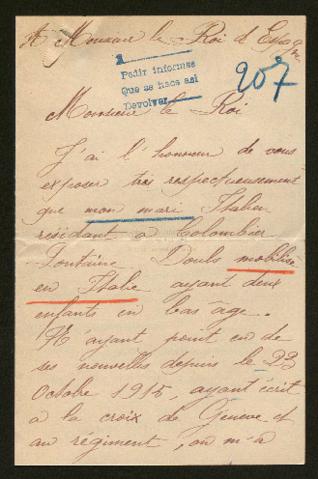 A Monsieur le Roi d'Espagne
Pedir informes
Que se haos asi
Devolver
207
Monsieur le Roi
J'ai l'honneur de vous
exposer tres respectueusement
que mon mari Italien
résidant à Colombier
Fontaine Doubs mobilisé
en Italie ayant deux
enfants in bas âge.
N'ayant point eu de
ses nouvelles depuis le 23
Octobre 1915, ayant écrit
a la croix de Geneve et
au régiment, on m'a